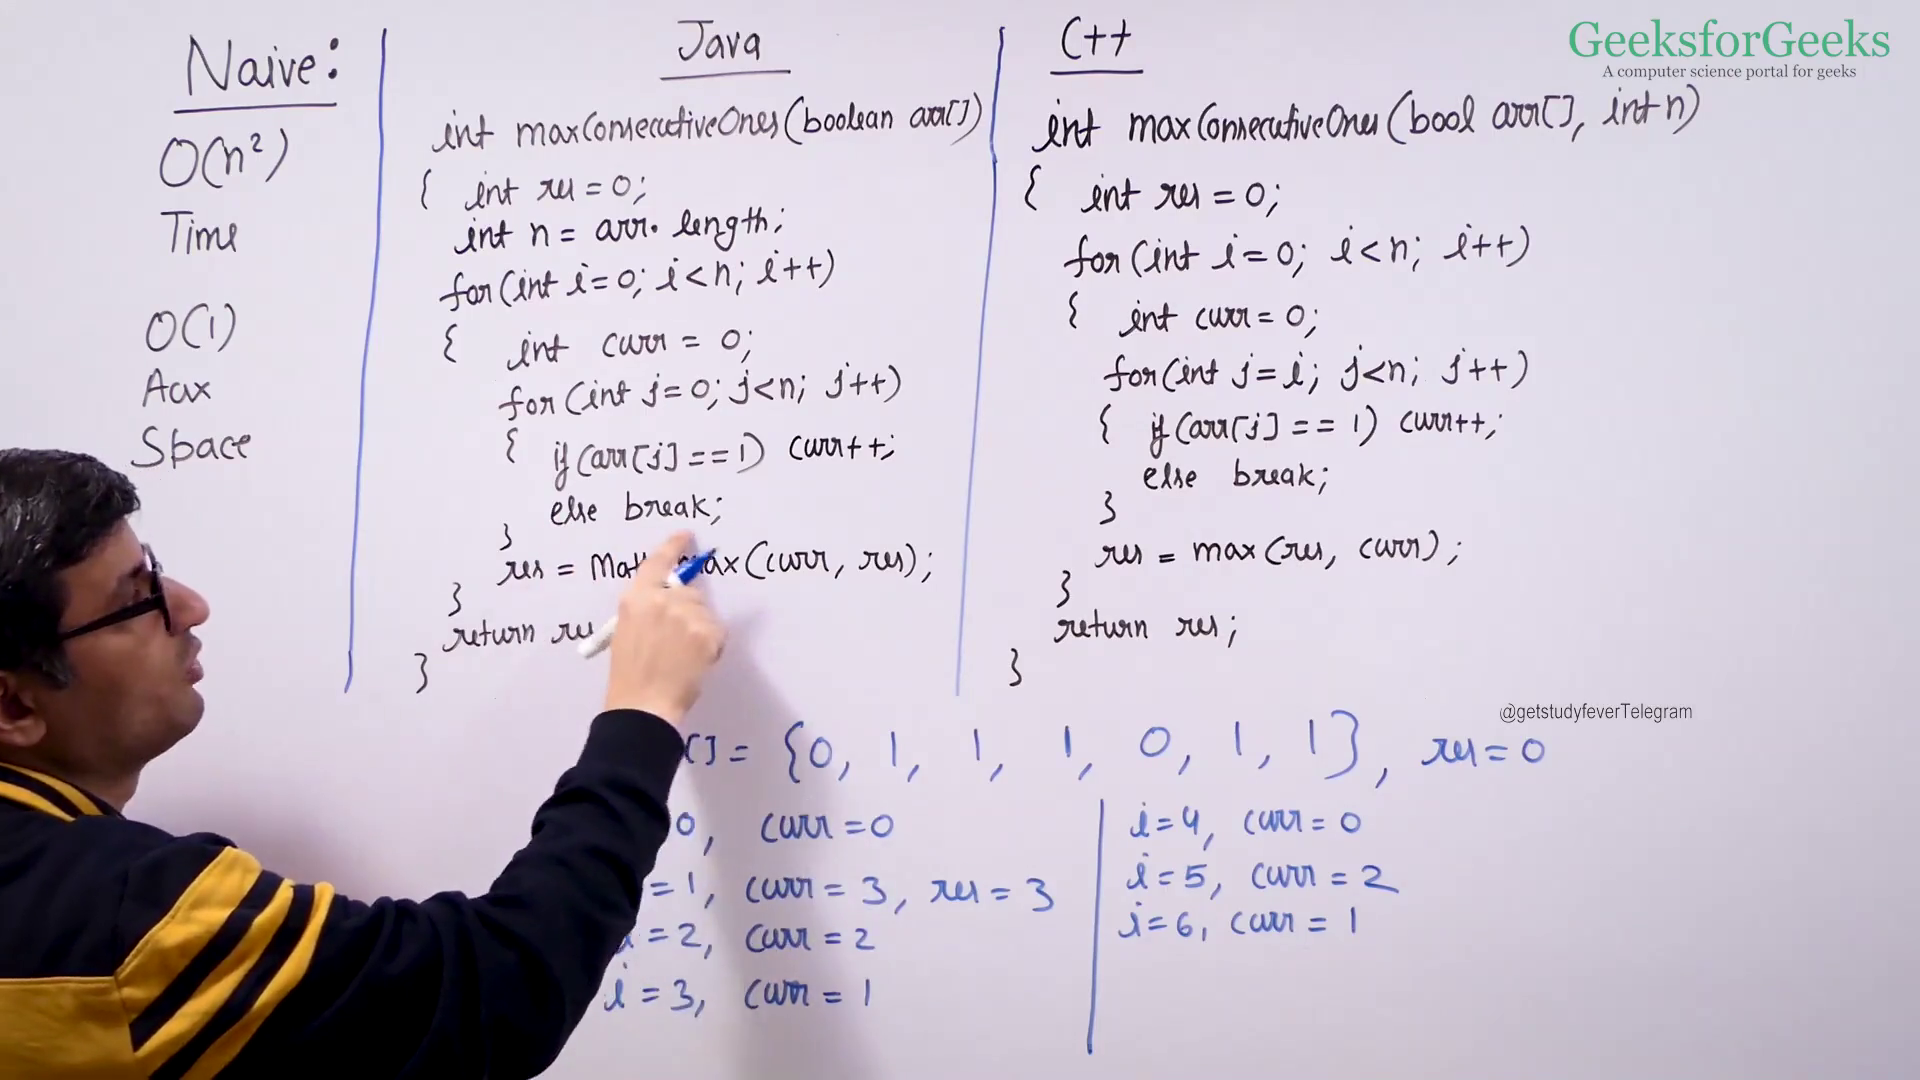 GeeksforGeeks
A computer science portal for geeks
Naive:
O(n²)
Time
O(1)
Aux
Space
Java
int maxConsecutiveOnes(boolean arr[])
{ int res = 0;
int n = arr.length;
for(int i=0; i<n; i++)
{ int curr = 0;
for(int j=0; j<n; j++)
{ if(arr[j]==1) curr++;
else break;
}
res = max(curr, res);
}
return res
}
C++
int maxConsecutiveOnes(bool arr[], int n)
{ int res = 0;
for(int i=0; i<n; i++)
{ int curr = 0;
for(int j=i; j<n; j++)
{ if(arr[j] == 1) curr++;
else break;
}
res = max(res, curr);
}
return res;
}
@getstudyfeverTelegram
[] = {0, 1, 1, 1, 0, 1, 1}, res=0
0, curr=0
=1, curr=3, res=3
i=2, curr=2
i=3, curr=1
i=4, curr=0
i=5, curr=2
i=6, curr=1